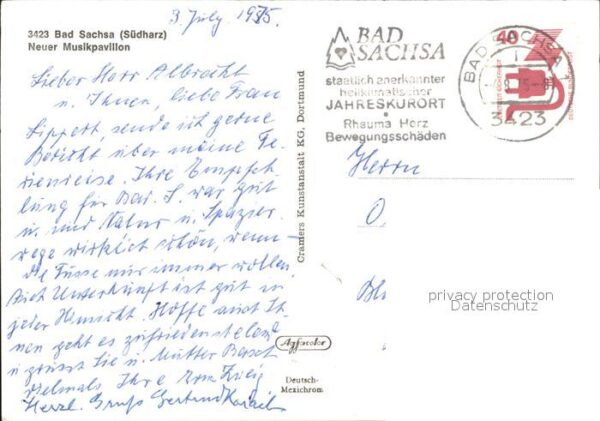 3. July 1975
3423 Bad Sachsa (Südharz)
Neuer Musikpavillon
Lieber Herr Albrecht
u. Ihnen, liebe Frau
Lippert, sende ich gerne
Bericht über meine Fe-
rienreise. Ihre Empfeh-
lung für Bad. S. war gut
u. und Natur u. Spazier
wege wirklich schön, wenn
die Füsse nur immer wollen.
Auch Unterkunft ist gut in
jeder Hinsicht. Hoffe auch Ih-
nen geht es zufriedenstellend
u grüsst Sie u. Mutter
vielmals Ihre
Herzl. Gruß Gertrud
Cramers Kunstanstalt KG, Dortmund
Agfacolor
Deutsch-
Mexichrom
BAD
SACHSA
staatlich anerkannter
heilklimatischer
JAHRESKURORT
Rheuma Herz
Bewegungsschäden
BAD SACHSA
3423
40
Herrn
O.
privacy protection
Datenschutz